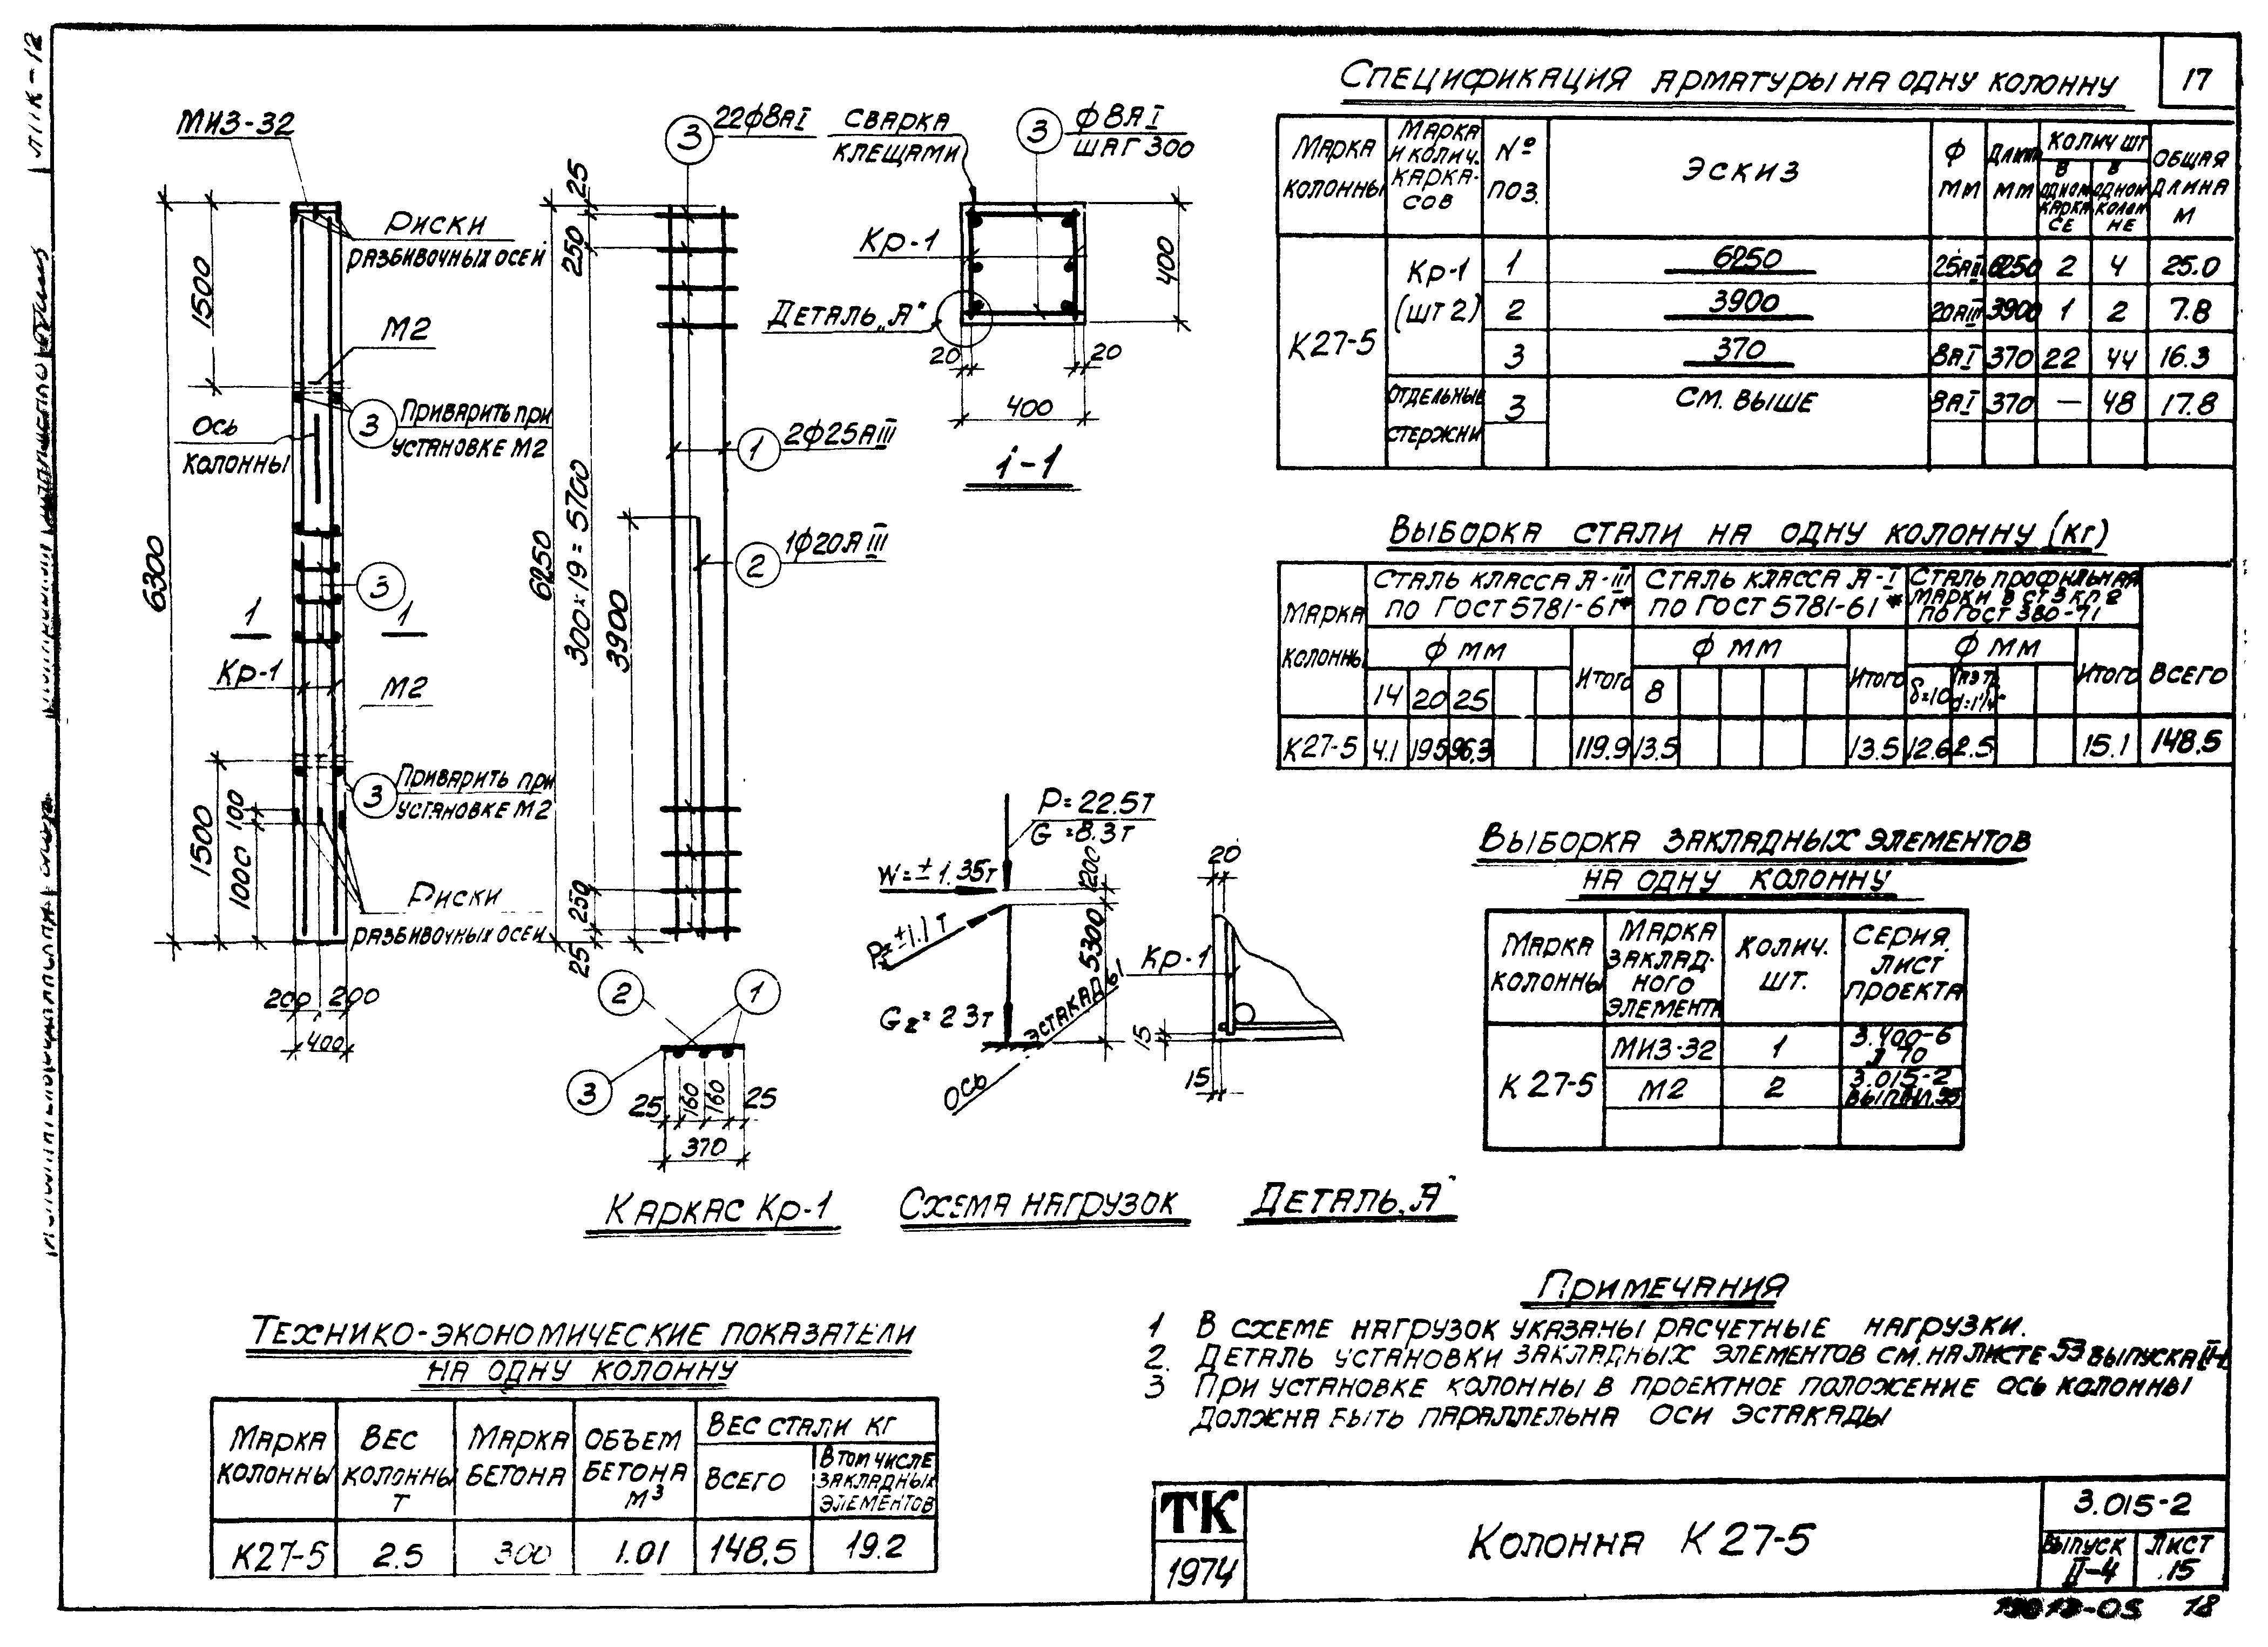 17
МИЗ-32
Риски
разбивочных осей
1500
М2
3
Приварить при
установке М2
Ось
колонны
6300
3
1 1
Кр-1
М2
3
Приварить при
установке М2
1500
100
1000
Риски
разбивочных осей
200 200
400
3
22ф8АI
25
250
6250
300×19=5700
3900
1
2ф25АIII
2
1ф20АIII
250
25
2 1
3
25 160 160 25
370
Каркас Кр-1
сварка
клещами
3
ф8АI
шаг 300
Кр-1
Деталь „А"
400
20 20
400
1-1
Р=22.5т
G=8.3т
W=±1.35т
200
5300
ось эстакады
Схема нагрузок
20
Кр-1
15
15
Деталь „А"
Спецификация арматуры на одну колонну
Марка колонны
Марка и колич. каркасов
№ поз.
Эскиз
ф мм
Длин мм
Колич шт
в одном каркасе
в одном колонне
Общая длина м
К27-5
Кр-1 (шт 2)
1 6250 25АIII 6250 2 4 25.0
2 3900 20АIII 3900 1 2 7.8
3 370 8АI 370 22 44 16.3
Отдельные стержни
3 см. выше 8АI 370 — 48 17.8
Выборка стали на одну колонну (кг)
Марка колонны
Сталь класса А-III по ГОСТ 5781-61*
Сталь класса А-I по ГОСТ 5781-61*
Сталь профильная марки В ст 3 кп 2 по ГОСТ 380-71
Всего
ф мм Итого ф мм Итого ф мм Итого
14 20 25 8 δ=10
К27-5 4.1 19.5 96.3 119.9 13.5 13.5 12.6 2.5 15.1 148.5
Выборка закладных элементов
на одну колонну
Марка колонны
Марка закладного элемента
Колич. шт.
Серия. лист проекта
К27-5
МИЗ-32 1 3.400-6 л 70
М2 2 3.015-2
Примечания
1 В схеме нагрузок указаны расчетные нагрузки.
2. Деталь установки закладных элементов см. на листе 53 выпуска
3 При установке колонны в проектное положение ось колонны
должна быть параллельна оси эстакады
Технико-экономические показатели
на одну колонну
Марка колонны
Вес колонны т
Марка бетона
Объем бетона м³
Вес стали кг
Всего
В том числе закладных элементов
К27-5 2.5 300 1.01 148.5 19.2
ТК
1974
Колонна К27-5
3.015-2
Выпуск II-4
Лист 15
18